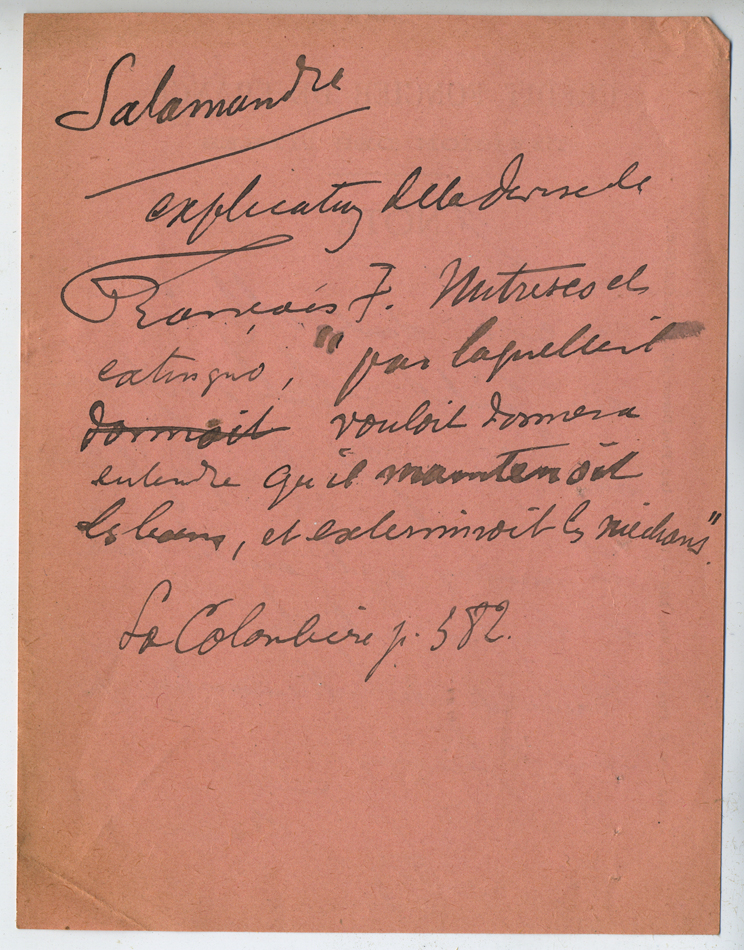 Salamandre
explication de la devise de
François I. Nutrisco et
extinguo, "par laquelle il
donnoit vouloit donner a
entendre qu'il maintenoit
les bons, et exterminoit les méchans".
La Colombière p. 582.